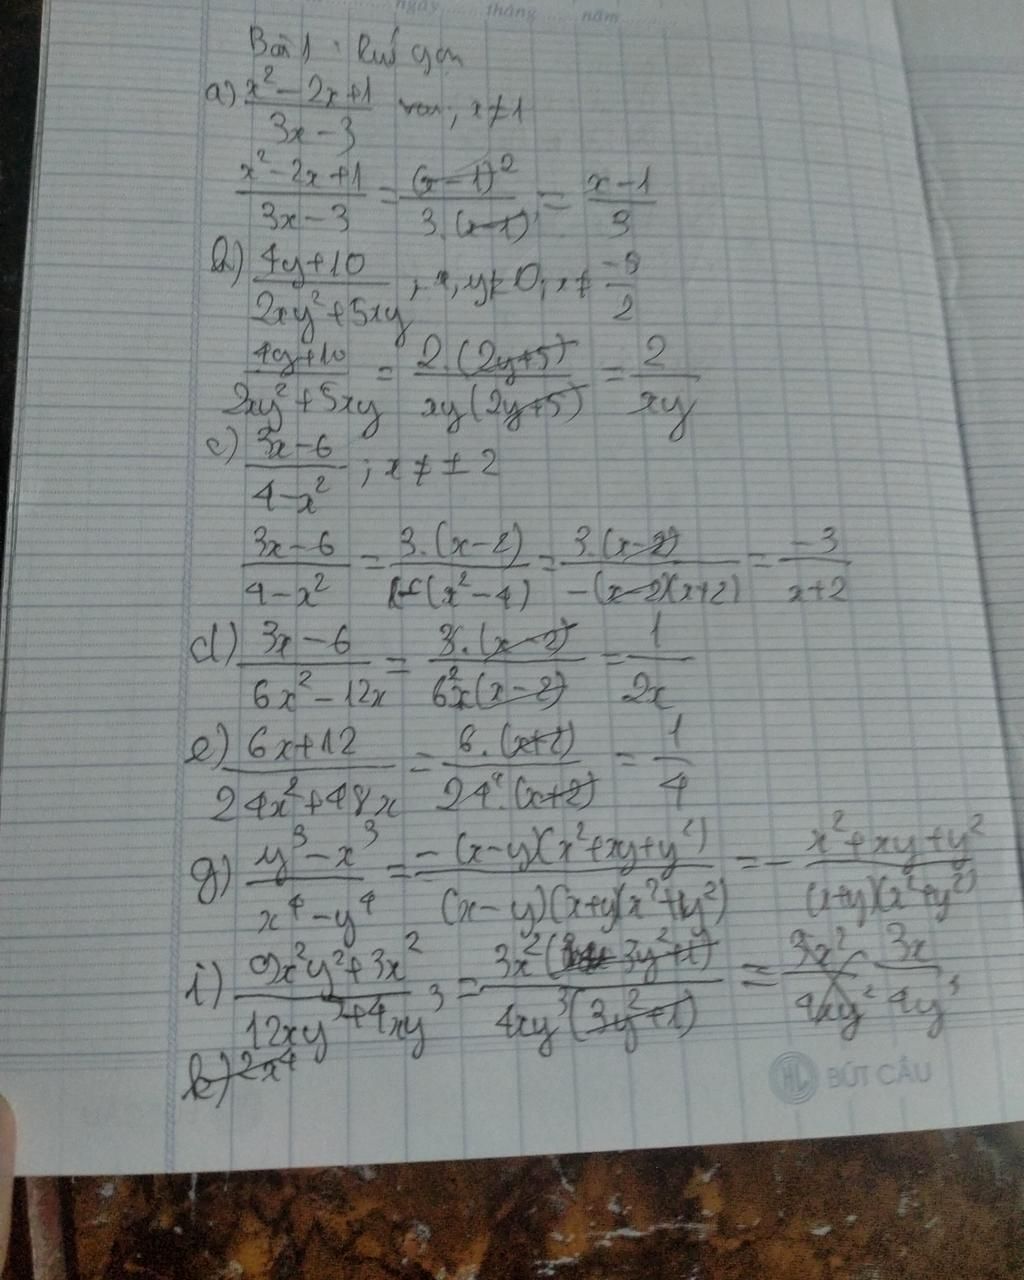 ngày ...... tháng ...... năm ......
Bài 1: Rút gọn
a) \frac{x^2 - 2x + 1}{3x - 3} ; x ≠ 1
\frac{x^2 - 2x + 1}{3x - 3} = \frac{(x - 1)^2}{3.(x - 1)} = \frac{x - 1}{3}
b) \frac{4y + 10}{2xy^2 + 5xy} ; x, y ≠ 0; x ≠ \frac{-5}{2}
\frac{4y + 10}{2xy^2 + 5xy} = \frac{2.(2y + 5)}{xy(2y + 5)} = \frac{2}{xy}
c) \frac{3x - 6}{4 - x^2} ; x ≠ ± 2
\frac{3x - 6}{4 - x^2} = \frac{3.(x - 2)}{-(x^2 - 4)} = \frac{3.(x - 2)}{-(x - 2)(x + 2)} = \frac{-3}{x + 2}
d) \frac{3x - 6}{6x^2 - 12x} = \frac{3.(x - 2)}{6^2x(x - 2)} = \frac{1}{2x}
e) \frac{6x + 12}{24x^2 + 48x} = \frac{6.(x + 2)}{24^4.(x + 2)} = \frac{1}{4}
g) \frac{y^3 - x^3}{x^4 - y^4} = \frac{-(x - y)(x^2 + xy + y^2)}{(x - y)(x + y)(x^2 + y^2)} = - \frac{x^2 + xy + y^2}{(x + y)(x^2 + y^2)}
i) \frac{9x^2y^2 + 3x^2}{12xy^5 + 4xy^3} = \frac{3x^2(3y^2 + 1)}{4xy^3(3y^2 + 1)} = \frac{3x^2}{4xy^2} \frac{3x}{4y^3}
k) 2x^4
HL BÚT CÂU